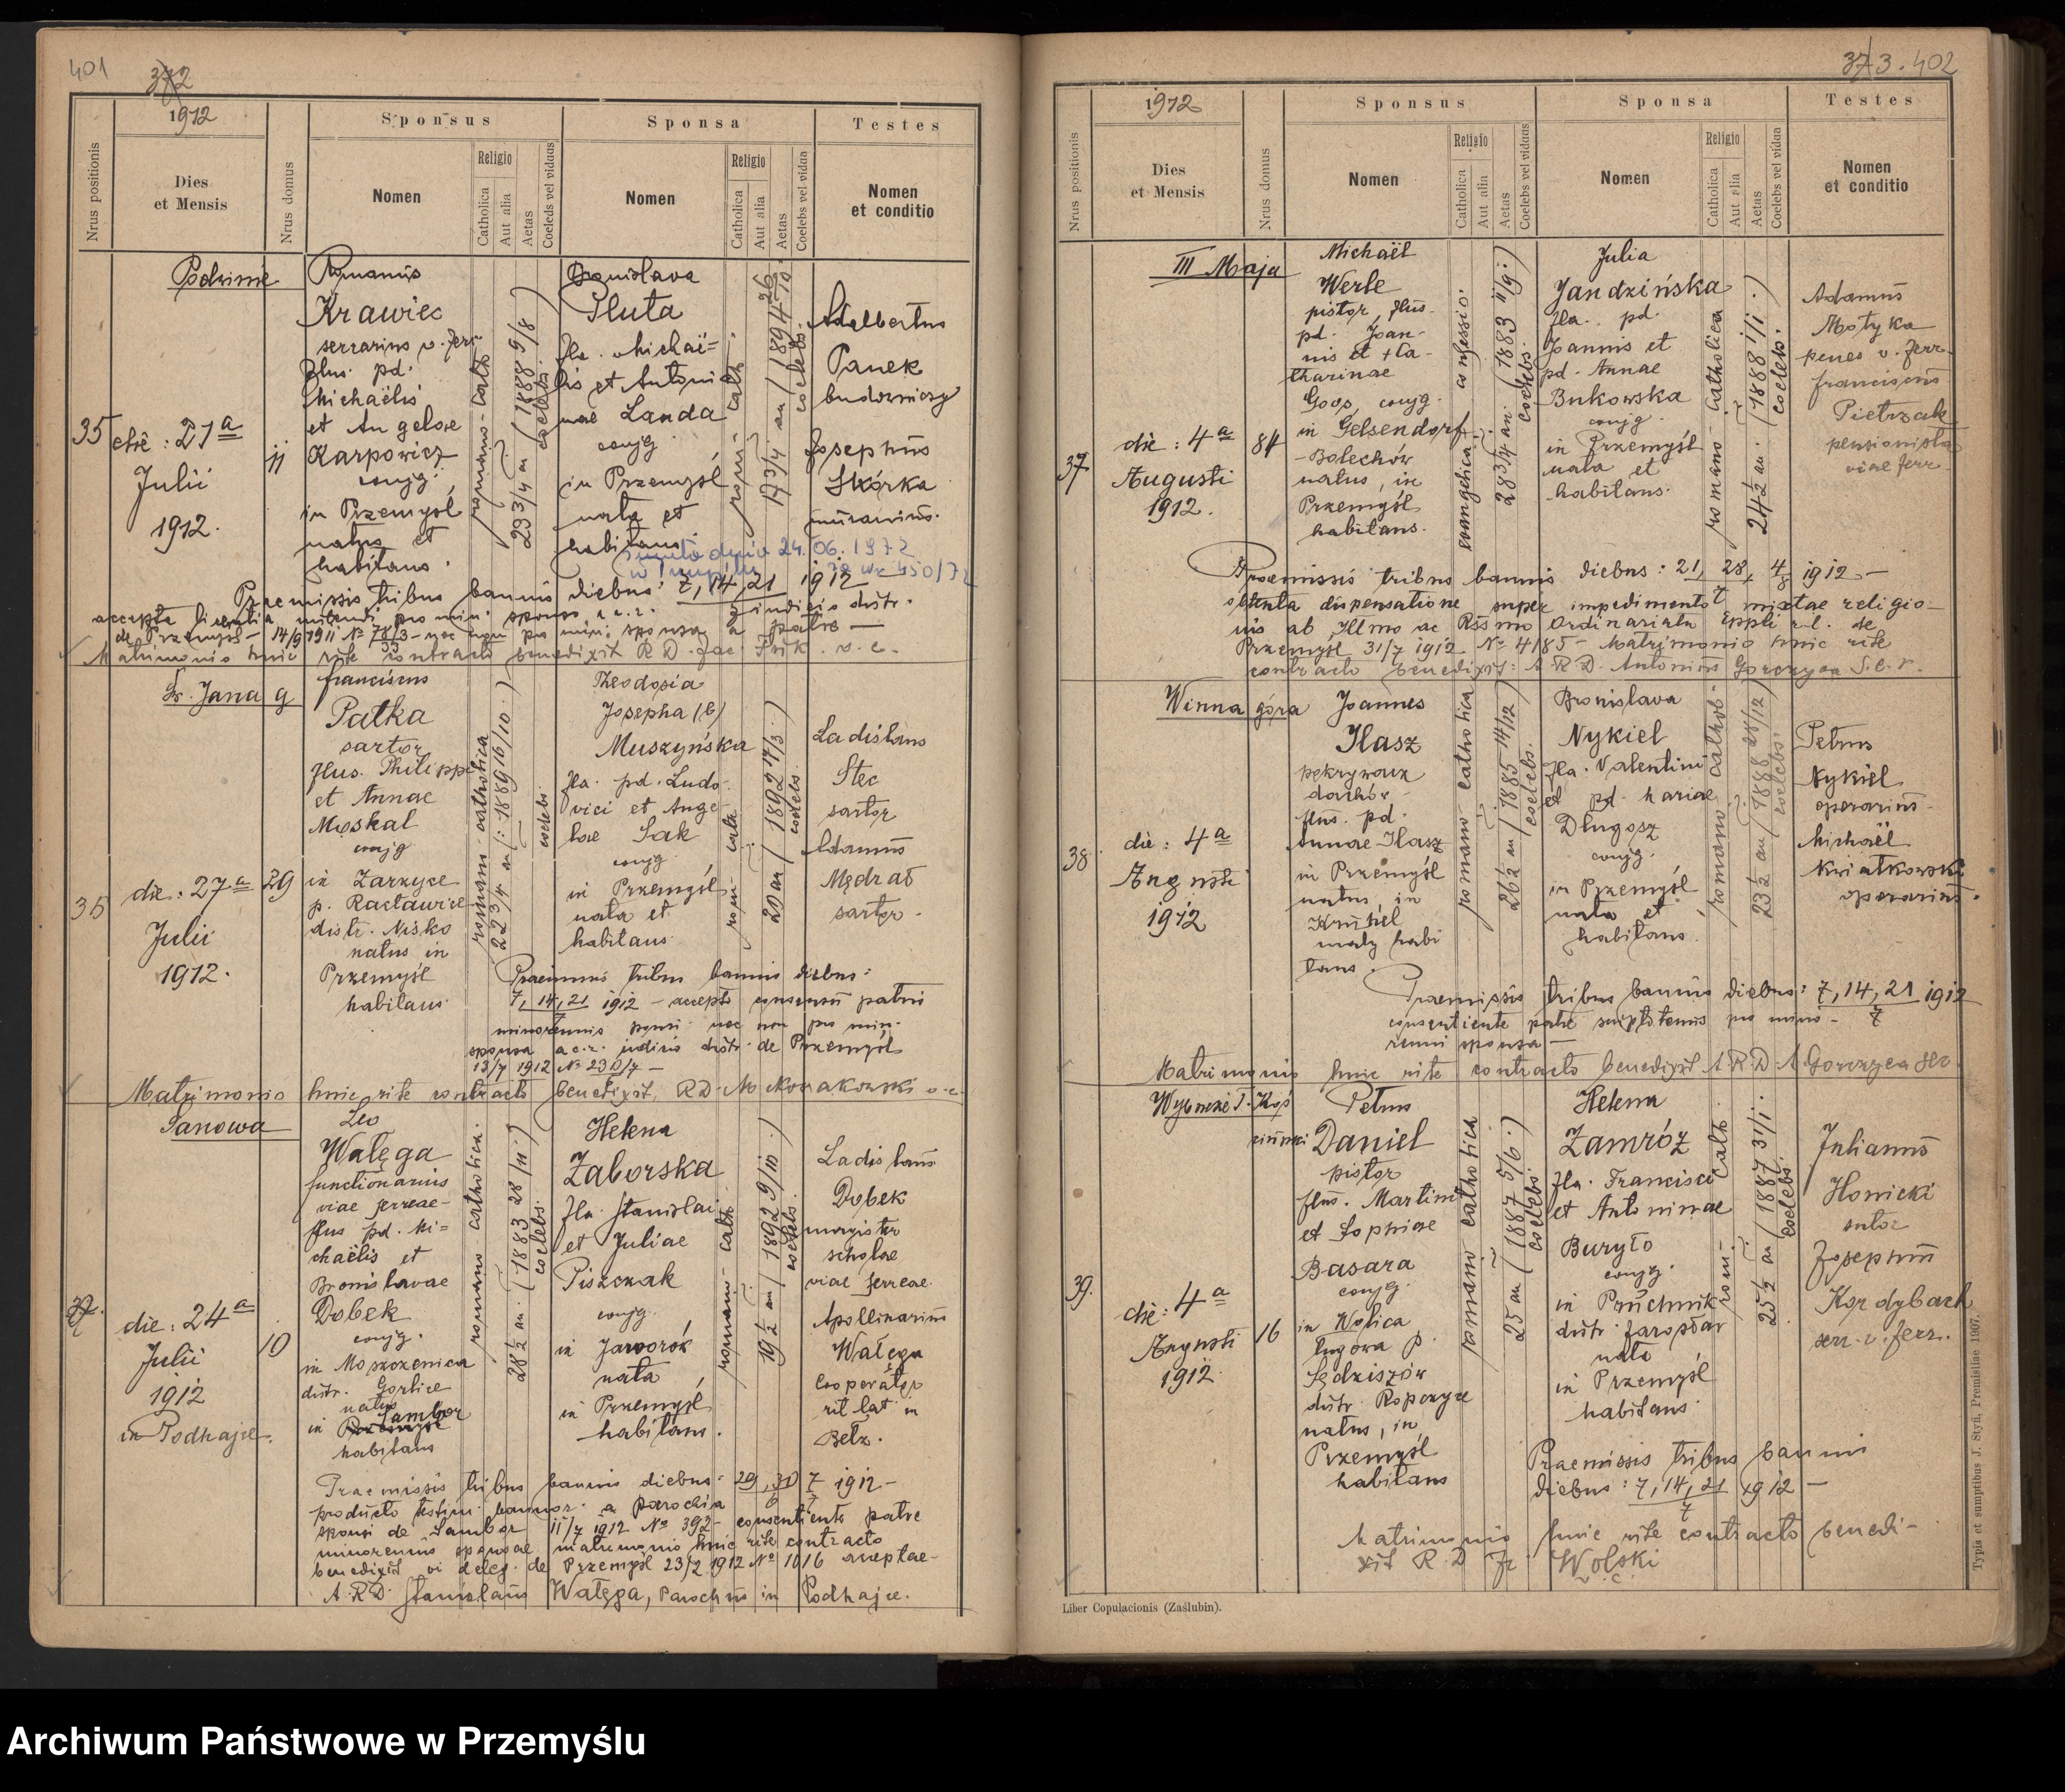 401
372
1912
Sponsus
Sponsa
Testes
Nrus positionis
Dies
et Mensis
Nrus domus
Nomen
Religio
Catholica
Aut alia
Aetas
Coelebs vel viduus
Nomen
Religio
Catholica
Aut alia
Aetas
Coelebs vel vidua
Nomen
et conditio
35
die: 21a
Julii
1912.
11
Romanus
Krawiec
Michaëlis
et Angelae
Karpowicz
conjg.
in Przemyśl
natus et
habitans.
romano-cath
23 3/4 an (1888 9/8)
coelebs
Pluta
fla. Michaë=
lis et Antoni
nae Landa
conjg
in Przemyśl
nata et
habitans.
17 3/4 an (1894
coelebs.
Adalbertus
Panek
budowniczy
Josephus
Skórka
murarius.
24.06.1972
450/72
Praemissis tribus bannis diebus: 7, 14, 21 1912
Matrimonio huic rite contracto benedixit R.D.
Św. Jana 9
36
die: 27a
Julii
1912.
29
Franciscus
Patka
sartor
flus. Philippi
et Annae
Moskal
conjg
in Zarzyce
p. Racławice
distr. Nisko
natus in
Przemyśl
habitans
romano-catholica
22 3/4 an (:1889 16/10.)
coelebs
Theodosia
Josepha (6)
Muszyńska
fla. pd. Ludo-
vici et Ange
lae Sak
conjg.
in Przemyśl
nata et
habitans.
20 an (1892 17/3.)
coelebs.
Ladislaus
Stec
sartor
Adamus
Mędrak
sartor.
Praemissis tribus bannis diebus:
7, 14, 21 1912 - accepto consensu patris
minorennis sponsi nec non pro min.
sponsa a c.r. judicio distr. de Przemyśl
Matrimonio huic rite contracto benedixit R.D. M. Nowakowski
Sanowa
die: 24a
Julii
1912
in Podhajce.
10
Leo
Wałęga
functionarius
viae ferreae-
flus pd. Mi=
chaëlis et
Bronislavae
Dobek
conjg.
in Moszczenica
distr. Gorlice
natus
in Sambor
habitans
romano-catholica.
28 1/2 an. (1883 28/11.)
coelebs.
Helena
Zaborska
fla. Stanislai
et Juliae
Piszczak
conjg.
in Jaworów
nata,
in Przemyśl
habitans.
romano-cath
19 1/2 an (1892 9/10.)
coelebs.
Ladislaus
Dobek
magister
scholae
viae ferreae.
Apollinarius
Wałęga
Cooperator
rit lat in
Bełz.
Praemissis tribus bannis diebus: 29, 30 7 1912-
producto testim. bannor. a parochia
sponsi de Sambor 11/7 1912 No 392- consentiente patre
minorennis sponsae matrimonio huic rite contracto
benedixit vi deleg. de Przemyśl 23/2 1912 No 1016 acceptae-
A.R.D. Stanislaus Wałęga, Parochus in Podhajce.
373. 402
1912
Sponsus
Sponsa
Testes
Nrus positionis
Dies
et Mensis
Nrus domus
Nomen
Religio
Catholica
Aut alia
Aetas
Coelebs vel viduus
Nomen
Religio
Catholica
Aut alia
Aetas
Coelebs vel vidua
Nomen
et conditio
III Maja
37
die: 4a
Augusti
1912.
84
Michaël
Werle
pistor, flus.
pd. Joan-
nis et +Ca-
tharinae
conjg.
in Gelsendorf
-Bolechów
natus, in
Przemyśl
habitans.
evangelica confessio.
28 3/4 an. (1883 11/9.)
coelebs.
Julia
Jandzińska
fla. pd.
Joannis et
pd. Annae
Bukowska
conjg.
in Przemyśl
nata et
habitans.
romano-catholica
24 1/2 an. (1888 1/1.)
coelebs.
Adamus
Motyka
penes v. ferr.
Franciscus
Pietrzak
pensionista
viae ferr.
Praemissis tribus bannis diebus: 21, 28, 4 1912.-
obtenta dispensatione super impedimento mixtae religio-
nis ab Illmo ac Rssmo Ordinariatu Eppli r.l. de
Przemyśl 31/7 1912 No 4185- Matrimonio huic rite
contracto benedixit: A.R.D. Antonius Gorczyca
Winna góra
38.
die: 4a
Augusti
1912
Joannes
Ilasz
pokrywacz
dachów-
flus. pd.
Annae Ilasz
in Przemyśl
natus, in
Kruhel
mały habi
tans.
romano catholica
26 1/2 an (1885 14/12)
coelebs.
Bronislava
Nykiel
fla. Valentini
et pd. Mariae
Długosz
conjg.
in Przemyśl
nata et
habitans.
romano cathol.
23 1/2 an (1888 28/12)
coelebs.
Petrus
Nykiel
operarius-
Michaël
Kwiatkowski
operarius.
Praemissis tribus bannis diebus: 7, 14, 21 1912
7
consentiente patre scriptotenus pro mino-
renni sponsa-
Matrimonio huic rite contracto benedixit A.R.D. A Gorczyca
Wybrzeże T. Koś
ciuszki
39.
die: 4a
Augusti
1912.
16
Petrus
Daniel
pistor
flus. Martini
et Sophiae
Basara
conjg.
in Wolica
ługowa p.
Sędziszów
distr. Ropczyce
natus, in
Przemyśl
habitans
romano catholica
25 an (1887 5/6.)
coelebs.
Helena
Zamróz
fla. Francisci
et Antoninae
Buryło
conjg.
in Pruchnik
distr. Jarosław
nata
in Przemyśl
habitans.
rom. cath.
25 1/2 an (1887 31/1.)
coelebs.
Julianus
Ilonicki
sutor
Josephus
Kordybach
serr. v. ferr.
Praemissis tribus bannis
diebus: 7, 14, 21 1912-
7
Matrimonio huic rite contracto benedi-
xit R.D. Fr. Wolski
Liber Copulacionis (Zaślubin).
Typis et sumptibus J. Styfi, Premisliae 1907.
Archiwum Państwowe w Przemyślu